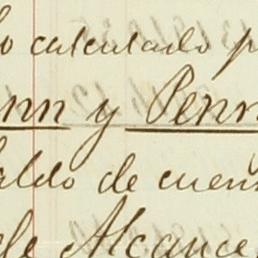 lo calculado p
nn y Penn
aldo de cuen
de Alcance